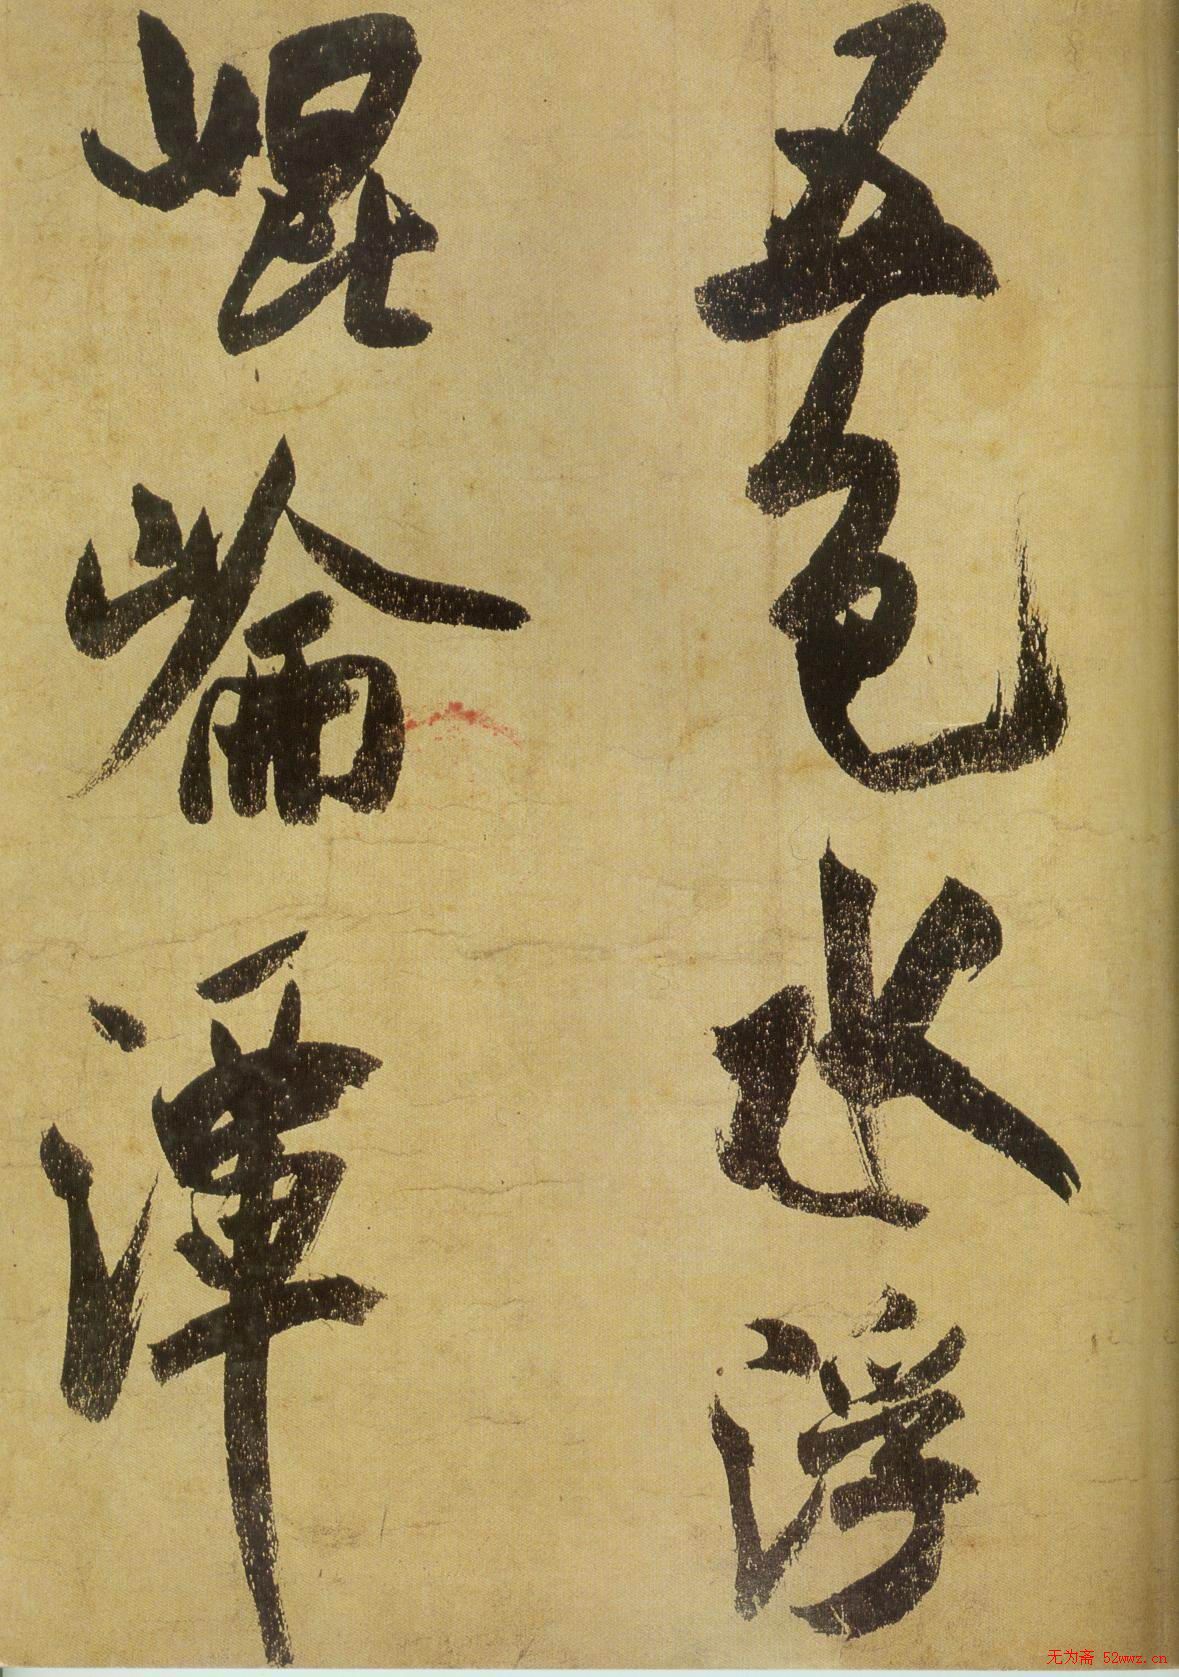 五色水浮
崐崘潭
无为斋 52wwz.cn